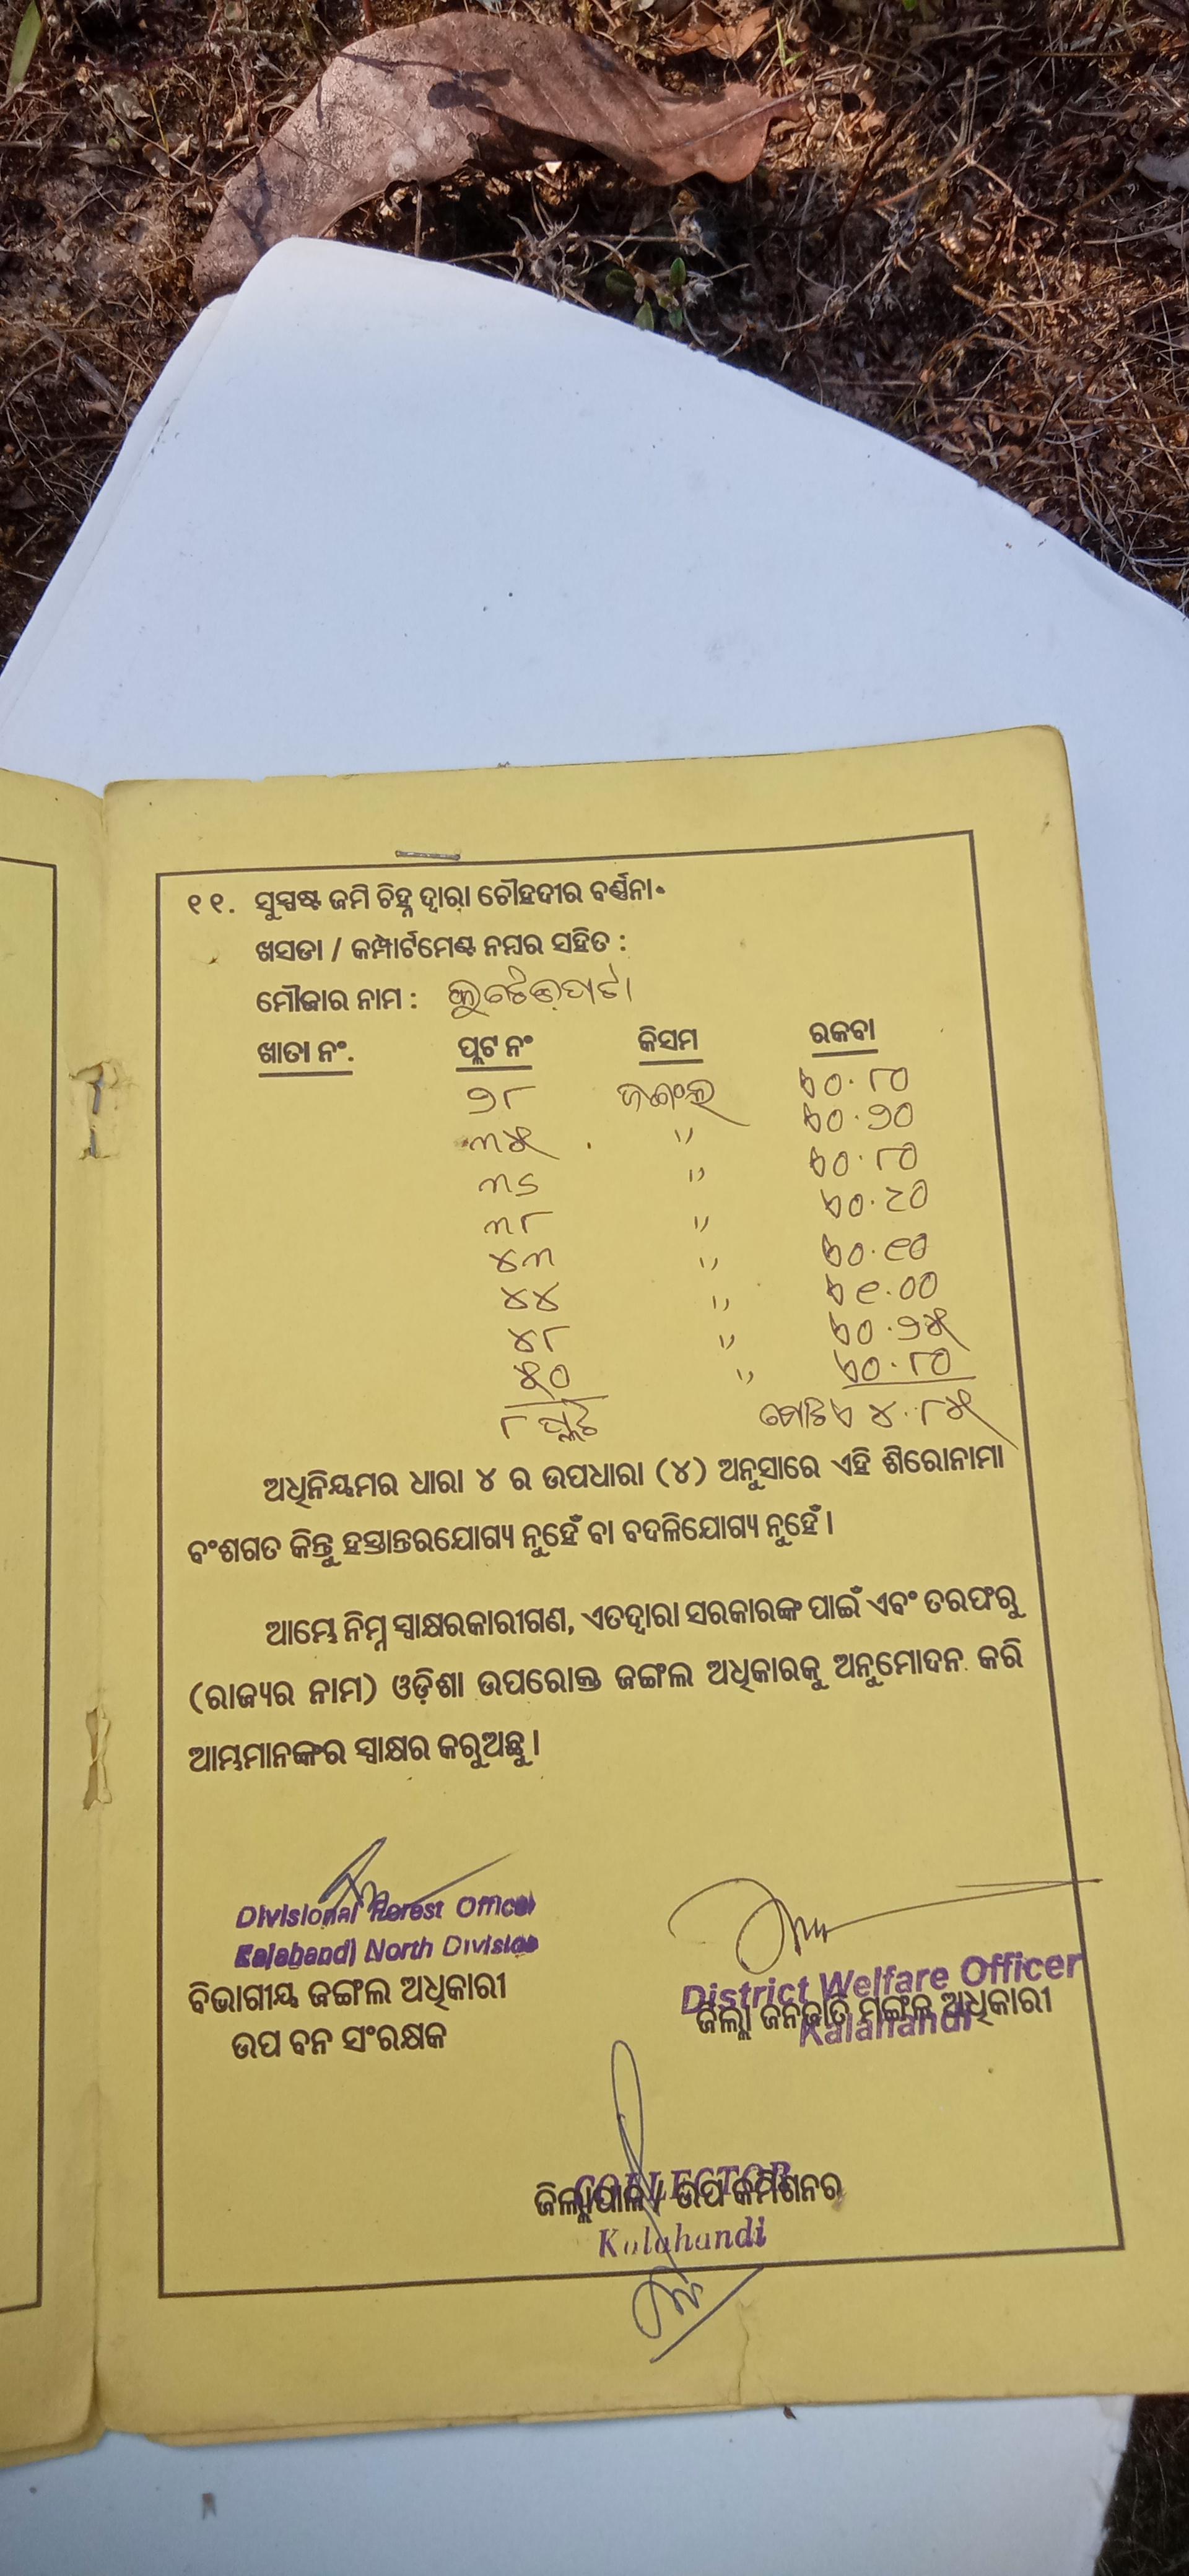 ୧୧. ସୁସ୍ପଷ୍ଟ ଜମି ଚିହ୍ନ ଦ୍ଵାରା ଚୌହଦୀର ବର୍ଣ୍ଣନା
ଖସଡା / କମ୍ପାର୍ଟମେଣ୍ଟ ନମ୍ବର ସହିତ :
ମୌଜାର ନାମ :
ଖାତା ନଂ. ପ୍ଲଟ ନଂ କିସମ ରକବା
୨୮ ଜଙ୍ଗଲ ଏ୦.୮୦
୩୫ " ଏ୦.୨୦
୩୬ " ଏ୦.୮୦
୩୮ " ଏ୦.୪୦
୪୩ " ଏ୦.୧୦
୪୪ " ଏ୧.୦୦
୪୮ " ଏ୦.୨୫
୫୦ " ଏ୦.୮୦
୮ ପ୍ଲଟ ମୋଟ ଏ ୪.୮୫
ଅଧିନିୟମର ଧାରା ୪ ର ଉପଧାରା (୪) ଅନୁସାରେ ଏହି ଶିରୋନାମା
ବଂଶଗତ କିନ୍ତୁ ହସ୍ତାନ୍ତରଯୋଗ୍ୟ ନୁହେଁ ବା ବଦଳିଯୋଗ୍ୟ ନୁହେଁ ।
ଆମ୍ଭେ ନିମ୍ନ ସ୍ଵାକ୍ଷରକାରୀଗଣ, ଏତଦ୍ଵାରା ସରକାରଙ୍କ ପାଇଁ ଏବଂ ତରଫରୁ
(ରାଜ୍ୟର ନାମ) ଓଡ଼ିଶା ଉପରୋକ୍ତ ଜଙ୍ଗଲ ଅଧିକାରକୁ ଅନୁମୋଦନ କରି
ଆମ୍ଭମାନଙ୍କର ସ୍ଵାକ୍ଷର କରୁଅଛୁ ।
Divisional Forest Officer
Kalahandi North Division
ବିଭାଗୀୟ ଜଙ୍ଗଲ ଅଧିକାରୀ
ଉପ ବନ ସଂରକ୍ଷକ
District Welfare Officer
ଜିଲ୍ଲା ଜନଜାତି ମଙ୍ଗଳ ଅଧିକାରୀ
Kalahandi
COLLECTOR
ଜିଲ୍ଲାପାଳ / ଉପ କମିଶନର
Kalahandi